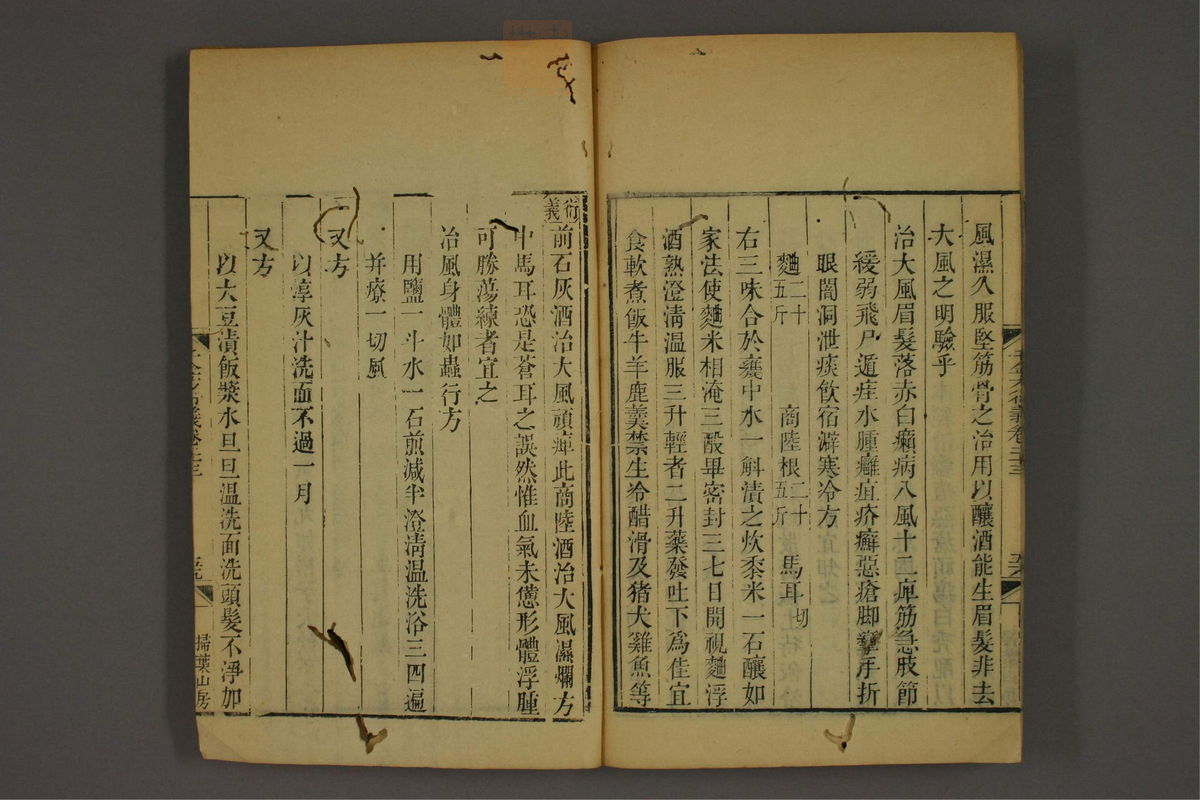 風濕久服堅筋骨之治用以釀酒能生眉髮非去
大風之明驗乎
治大風眉髮落赤白癩病八風十二痺筋急肢節
緩弱飛尸遁疰水腫癰疽疥癬惡瘡脚攣手折
眼闇洞泄痰飲宿澼寒冷方
麯二十五斤 商陸根二十五斤 馬耳切
右三味合於甕中水一斛漬之炊黍米一石釀如
家法使麯米相淹三酘畢密封三七日開視麯浮
酒熟澄淸温服三升輕者二升藥發吐下爲佳宜
食軟煮飯牛羊鹿羹禁生冷醋滑及猪犬雞魚等
衍義
前石灰酒治大風頑痺此商陸酒治大風濕爛方
中馬耳恐是蒼耳之誤然惟血氣未憊形體浮腫
可勝蕩練者宜之
治風身體如蟲行方
用鹽一斗水一石煎減半澄淸温洗浴三四遍
并療一切風
又方
以淳灰汁洗面不過一月
又方
以大豆漬飯漿水旦旦温洗面洗頭髮不淨加
掃葉山房